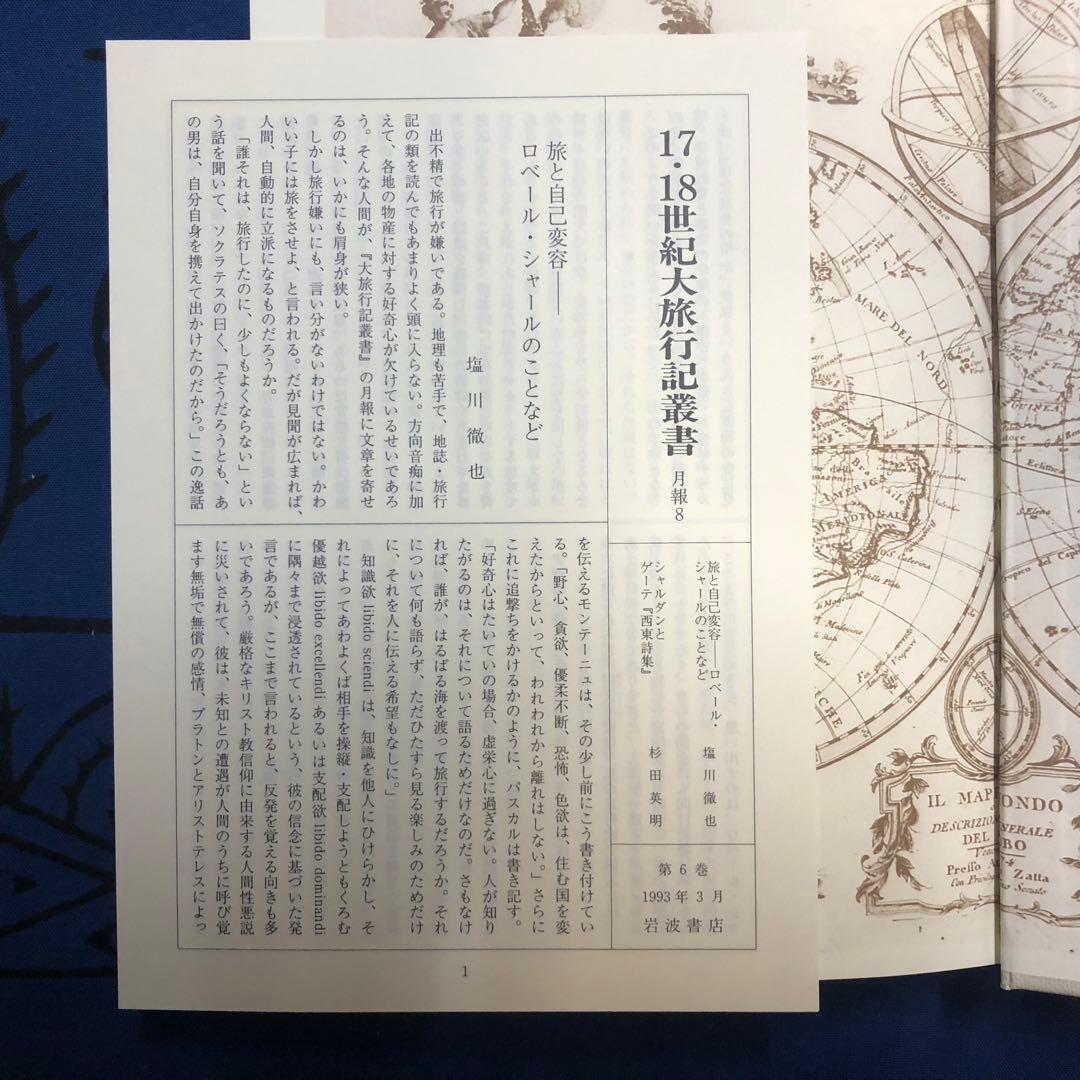 17・18世紀大旅行記叢書 月報8
旅と自己変容――ロベール・
シャールのことなど
塩川徹也
シャルダンと
ゲーテ『西東詩集』
杉田英明
第6巻
1993年3月
岩波書店
旅と自己変容――
ロベール・シャールのことなど
塩川徹也
出不精で旅行が嫌いである。地理も苦手で、地誌・旅行
記の類を読んでもあまりよく頭に入らない。方向音痴に加
えて、各地の物産に対する好奇心が欠けているせいであろ
う。そんな人間が、『大旅行記叢書』の月報に文章を寄せ
るのは、いかにも肩身が狭い。
しかし旅行嫌いにも、言い分がないわけではない。かわ
いい子には旅をさせよ、と言われる。だが見聞が広まれば、
人間、自動的に立派になるものだろうか。
「誰それは、旅行したのに、少しもよくならない」とい
う話を聞いて、ソクラテスの曰く、「そうだろうとも、あ
の男は、自分自身を携えて出かけたのだから。」この逸話
を伝えるモンテーニュは、その少し前にこう書き付けてい
る。「野心、貪欲、優柔不断、恐怖、色欲は、住む国を変
えたからといって、われわれから離れはしない。」さらに
これに追撃ちをかけるかのように、パスカルは書き記す。
「好奇心はたいていの場合、虚栄心に過ぎない。人が知り
たがるのは、それについて語るためだけなのだ。さもなけ
れば、誰が、はるばる海を渡って旅行するだろうか。それ
について何も語らず、ただひたすら見る楽しみのためだけ
に、それを人に伝える希望もなしに。」
知識欲 libido sciendi は、知識を他人にひけらかし、そ
れによってあわよくば相手を操縦・支配しようともくろむ
優越欲 libido excellendi あるいは支配欲 libido dominandi
に隅々まで浸透されているという、彼の信念に基づいた発
言であるが、ここまで言われると、反発を覚える向きも多
いであろう。厳格なキリスト教信仰に由来する人間性悪説
に災いされて、彼は、未知との遭遇が人間のうちに呼び覚
ます無垢で無償の感情、プラトンとアリストテレスによっ
1
MARE DEL NORD
AMERICA
MERIDIONALE
GUINEA
Ecliptica
S. Elena
Tropico del Capric
IL MAP
ONDO
DESCRIZIO
NERALE
DEL
BO
Presso A
Zatta